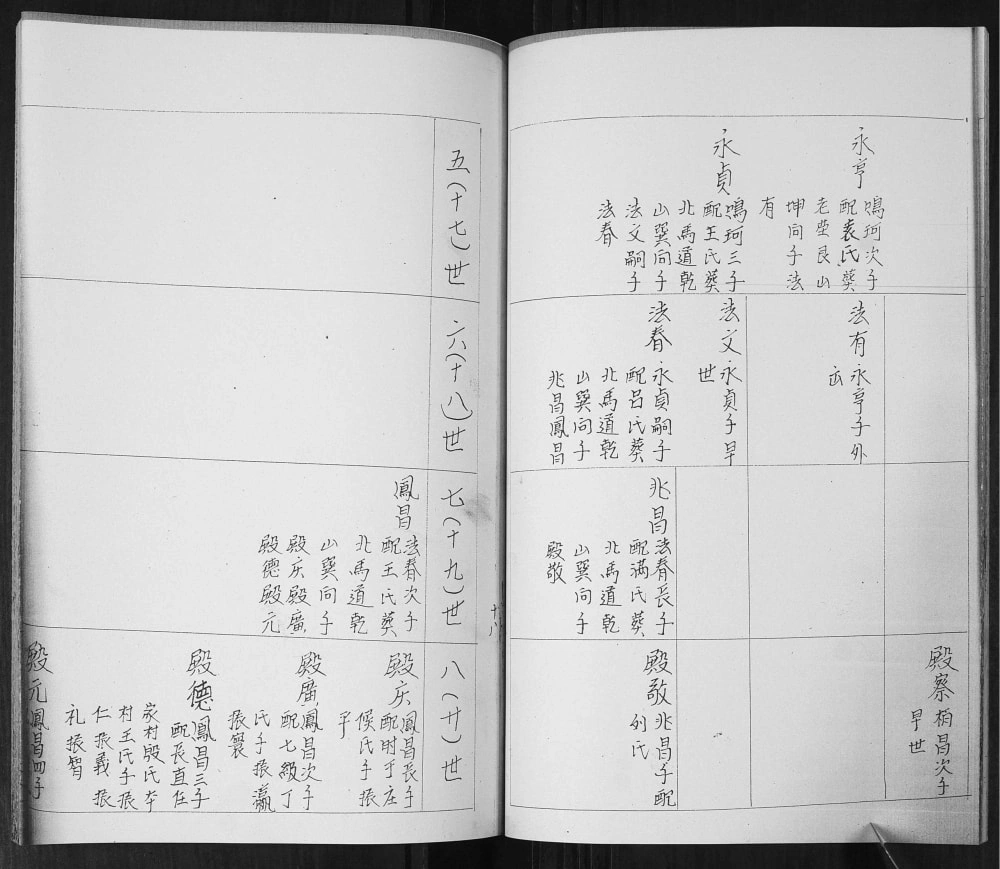 永亨
鳴珂次子
配袁氏葬
老塋艮山
坤向子法
有
永貞
鳴珂三子
配王氏葬
北馬道乾
山巽向子
法文嗣子
法春
法有
永亨子外
出
法文
永貞子早
世
法春
永貞嗣子
配呂氏葬
北馬道乾
山巽向子
兆昌鳳昌
兆昌
法春長子
配满氏葬
北馬道乾
山巽向子
殿敬
殿察
昌次子
早世
殿敬
兆昌子配
刘氏
五(十七)世
六(十八)世
七(十九)世
八(廿)世
十八
鳳昌
法春次子
配王氏葬
北馬道乾
山巽向子
殿庆殿廣
殿德殿元
殿庆
鳳昌長子
配时于庄
侯氏子振
宇
殿廣
鳳昌次子
配七級丁
氏子振瀛
振寰
殿德
鳳昌三子
配長直任
家村殷氏本
村王氏子振
仁振義振
礼振智
殿元
鳳昌四子